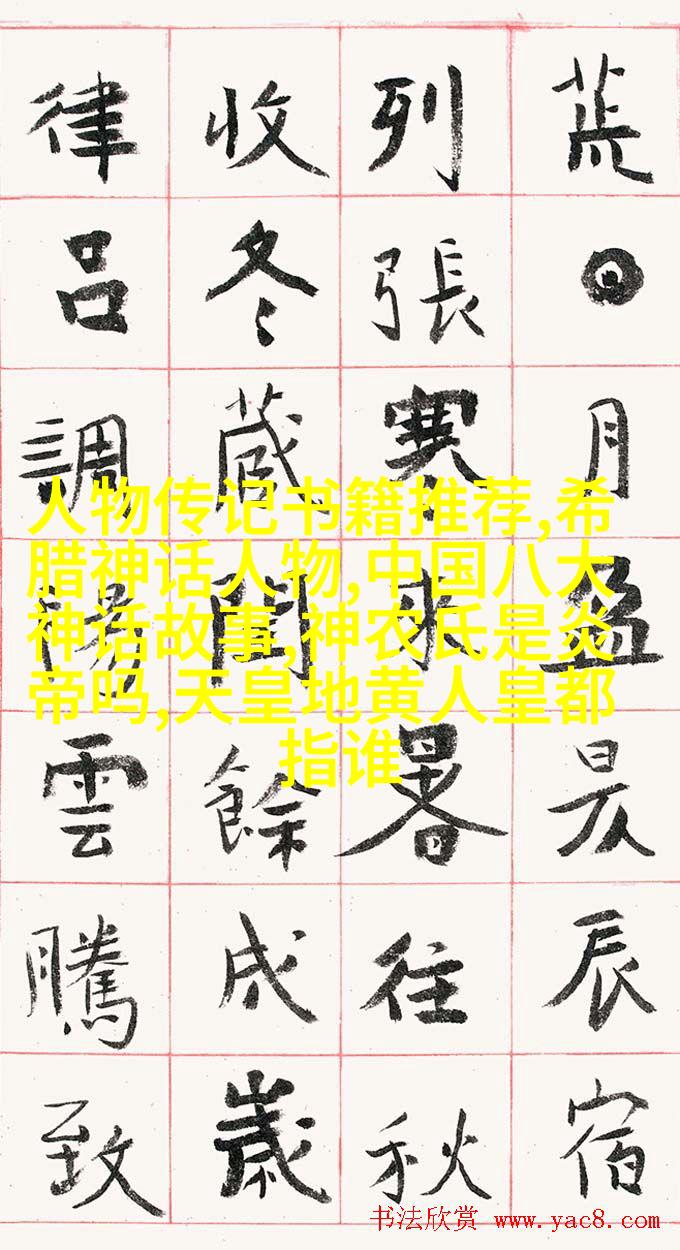 荒日月盈昃辰宿
列張寒來暑往秋
收冬藏閏餘成歲
律呂調陽雲騰致
人物传记书籍推荐,希
腊神话人物,中国八大
神话故事,神农氏是炎
帝吗,天皇地黄人皇都
指谁
书法欣赏 www.yac8.com